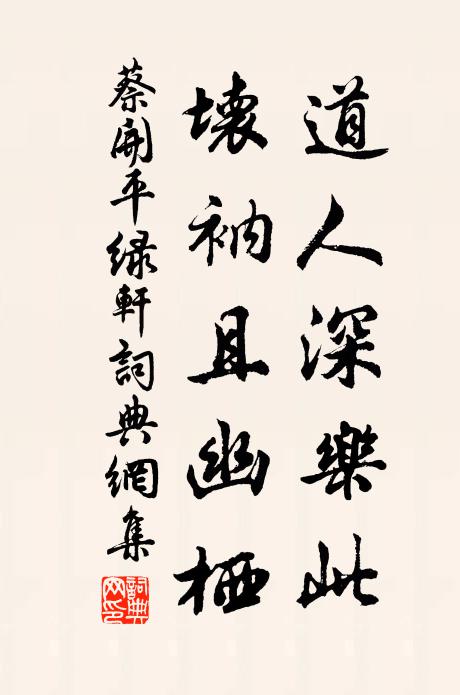 道人深樂此
壞衲且幽栖
蔡開平綠軒詞典網集
詞典網印